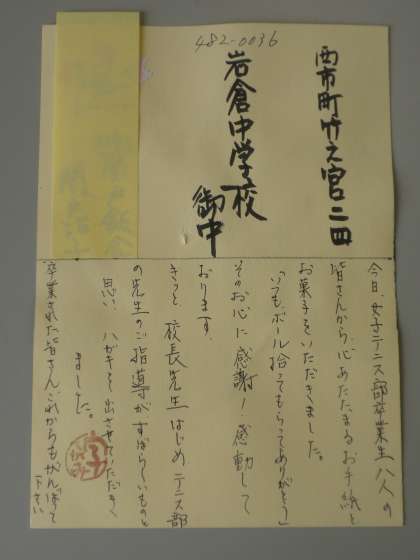 482-0036
西市町竹之宮二四
岩倉中学校
御中
今日、女子テニス部卒業生八人の
皆さんから、心あたたまるお手紙と
お菓子をいただきました。
「いつもボール拾ってもらってありがとう」
そのお心に感謝！感動して
おります。
きっと校長先生はじめテニス部
の先生のご指導がすばらしいものと
思い、ハガキを出させていただき
ました。
卒業された皆さんこれからもがんばって
下さい